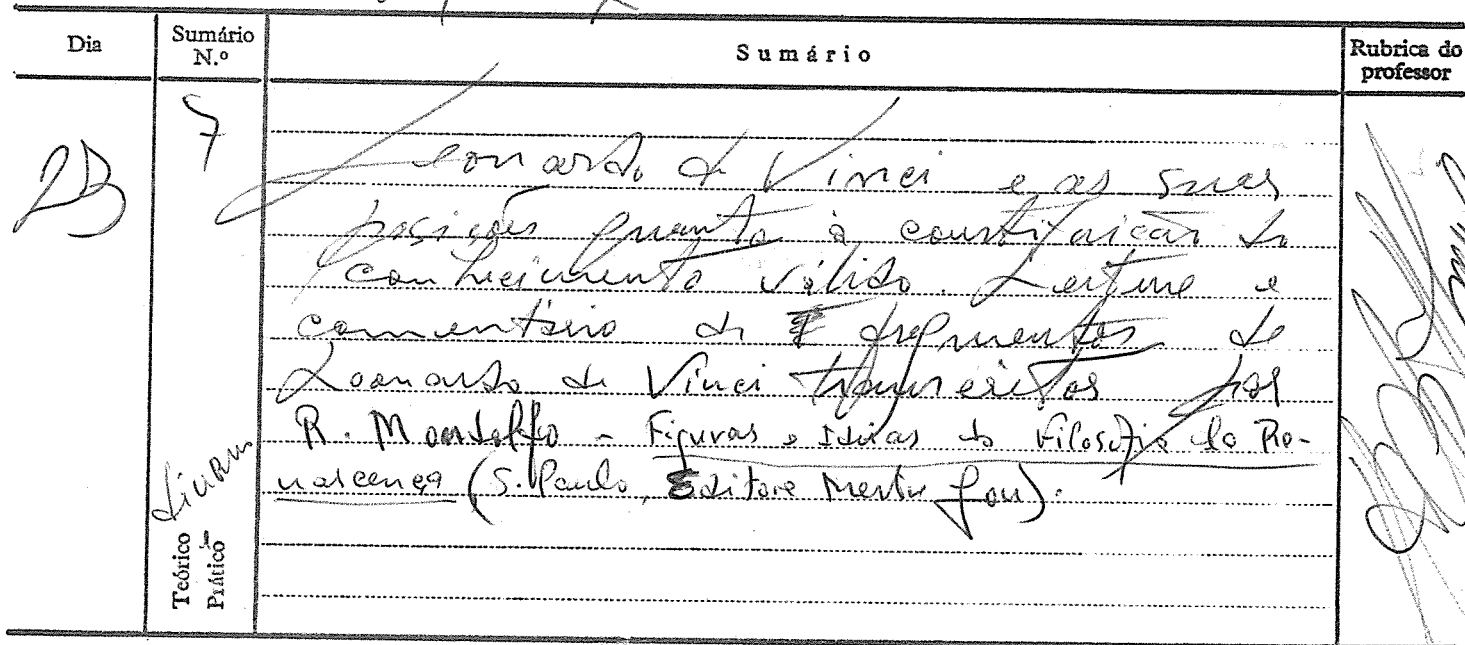 Dia
Sumário N.º
Sumário
Rubrica do professor
23
7
Leonardo de Vinci e as suas
posições quanto à constituição do
conhecimento válido. Leitura e
comentário de fragmentos de
Leonardo de Vinci transcritos por
R. Mondolfo - Figuras e Ideias da Filosofia da Re-
nascença (S. Paulo, Editora Mestre Jou).
Teórico
Prático